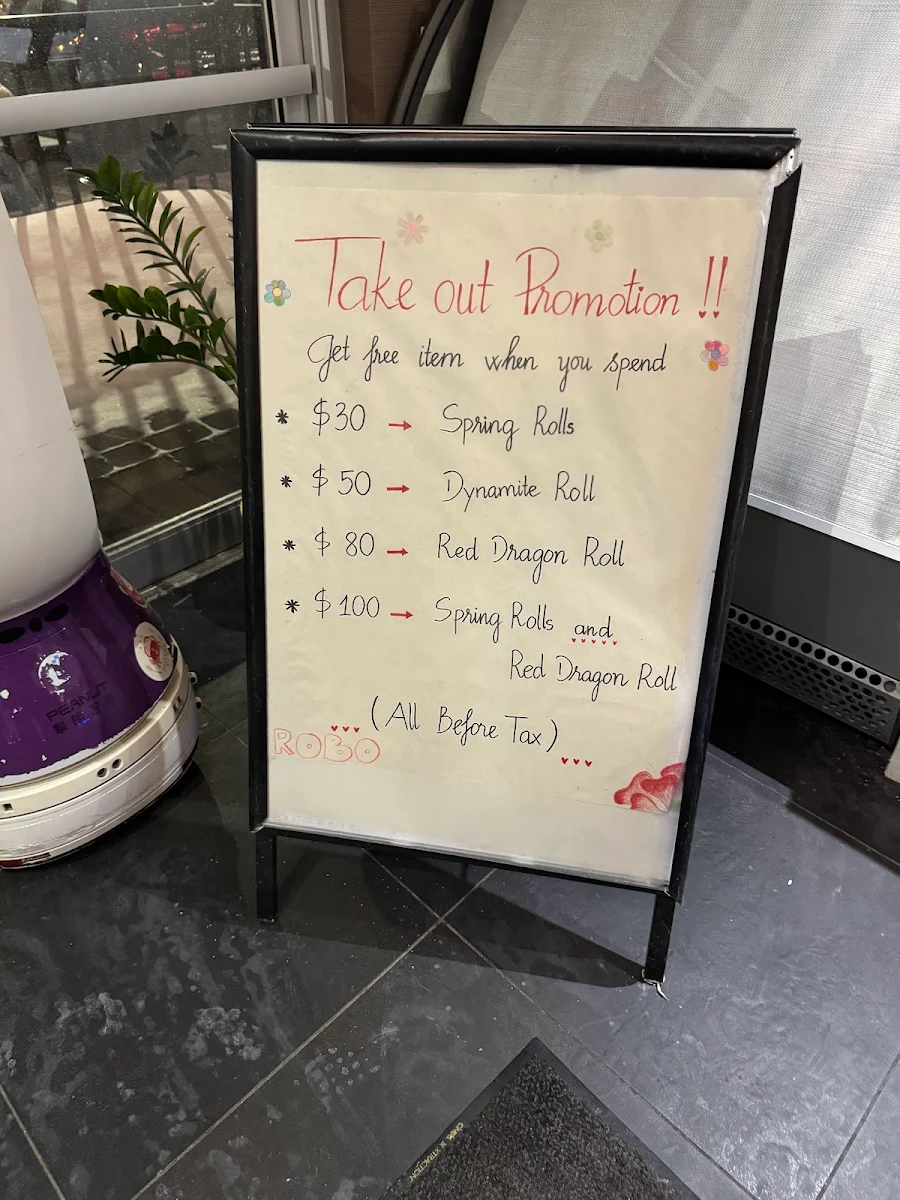 Take out Promotion !!
Get free item when you spend
* $30 → Spring Rolls
* $50 → Dynamite Roll
* $80 → Red Dragon Roll
* $100 → Spring Rolls and
Red Dragon Roll
(All Before Tax)
ROBO
PEANUT